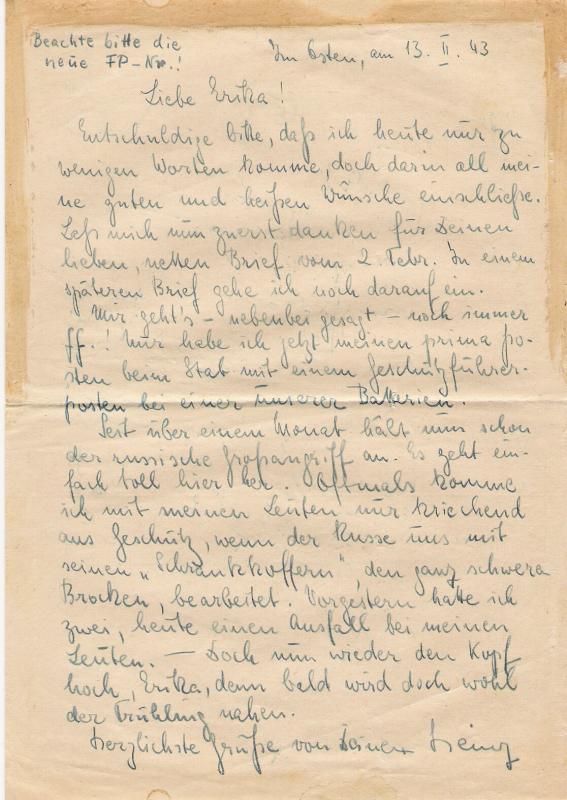 Beachte bitte die
neue FP-Nr.!
Im Osten, am 13. II. 43
Liebe Erika!
Entschuldige bitte, daß ich heute nur zu
wenigen Worten komme, doch darin all mei-
ne guten und heißen Wünsche einschließe.
Laß mich nun zuerst danken für Deinen
lieben, netten Brief vom 2. Febr. In einem
späteren Brief gehe ich noch darauf ein.
Mir geht's – nebenbei gesagt – noch immer
ff.! Nur habe ich jetzt meinen prima Po-
sten beim Stab mit einem Geschützführer-
posten bei einer unserer Batterien.
Seit über einem Monat hält nun schon
der russische Großangriff an. Es geht ein-
fach toll hier her. Oftmals komme
ich mit meinen Leuten nur kriechend
ans Geschütz, wenn der Russe uns mit
seinen „Schrankkoffern", den ganz schweren
Brocken, bearbeitet. Vorgestern hatte ich
zwei, heute einen Ausfall bei meinen
Leuten. — Doch nun wieder den Kopf
hoch, Erika, denn bald wird doch wohl
der Frühling nahen.
Herzlichste Grüße von Deinem Heinz